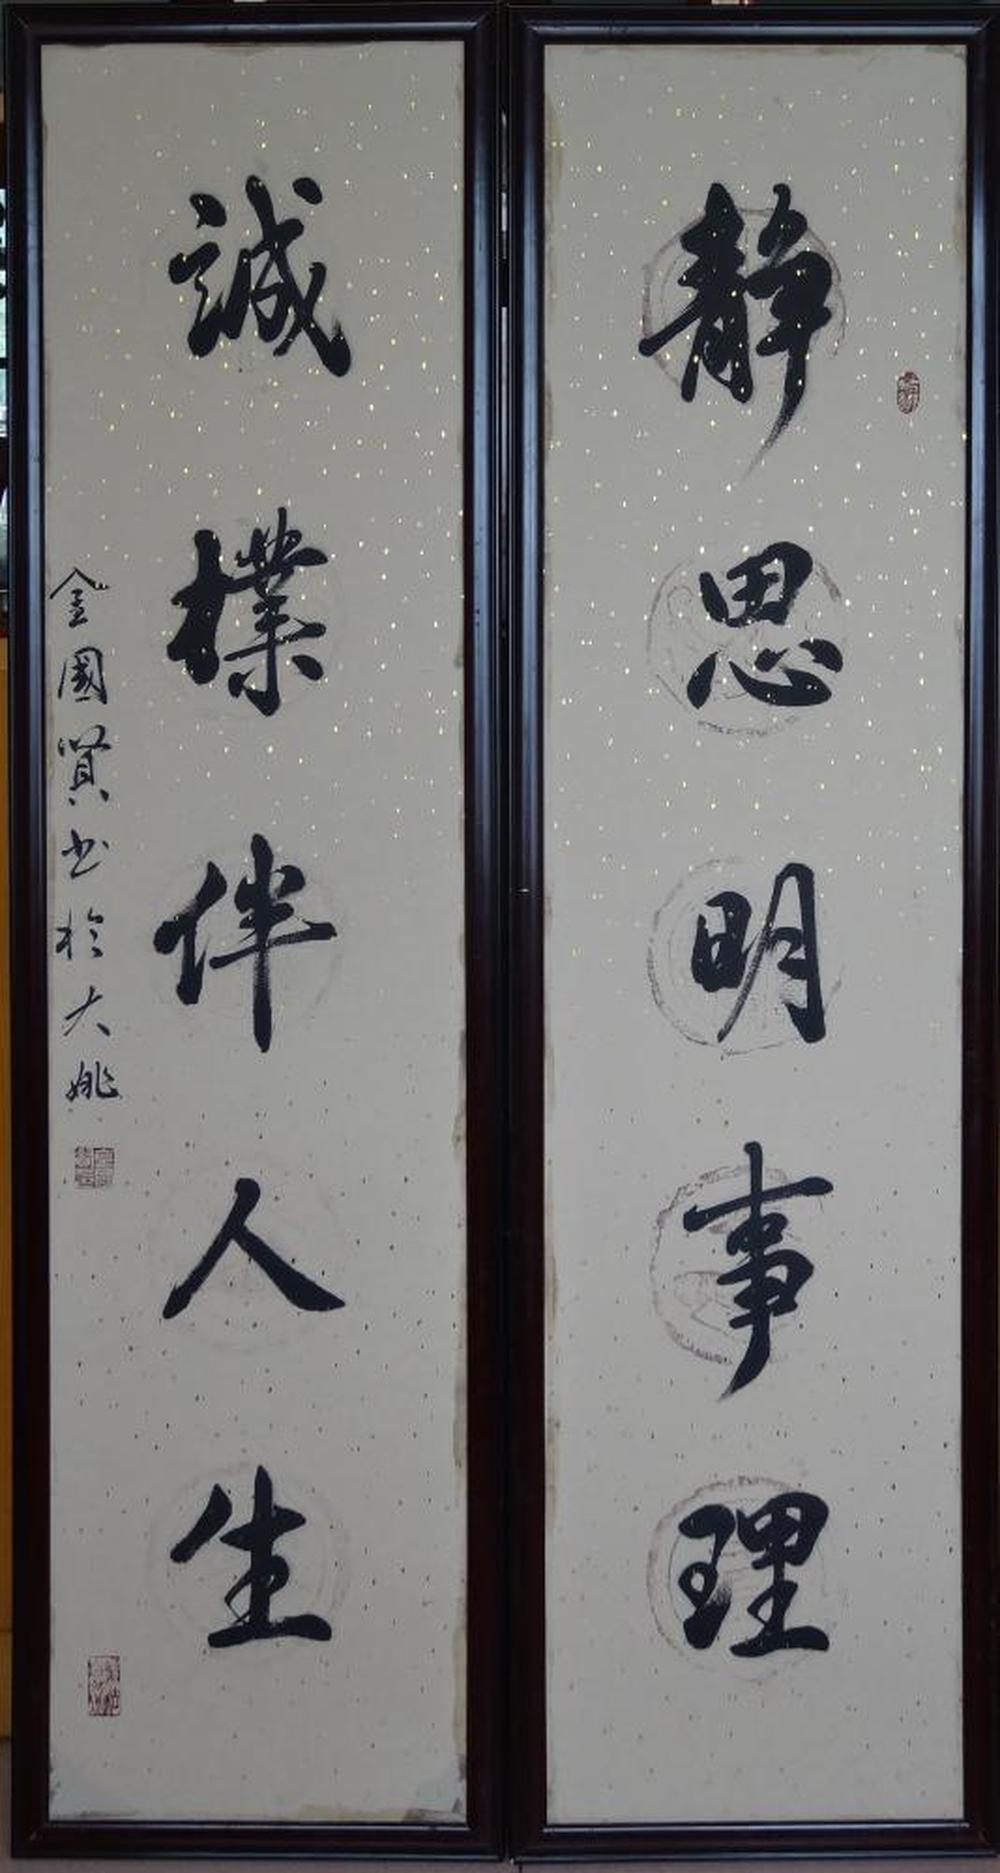 靜思明事理
誠樸伴人生
金國賢书於大姚